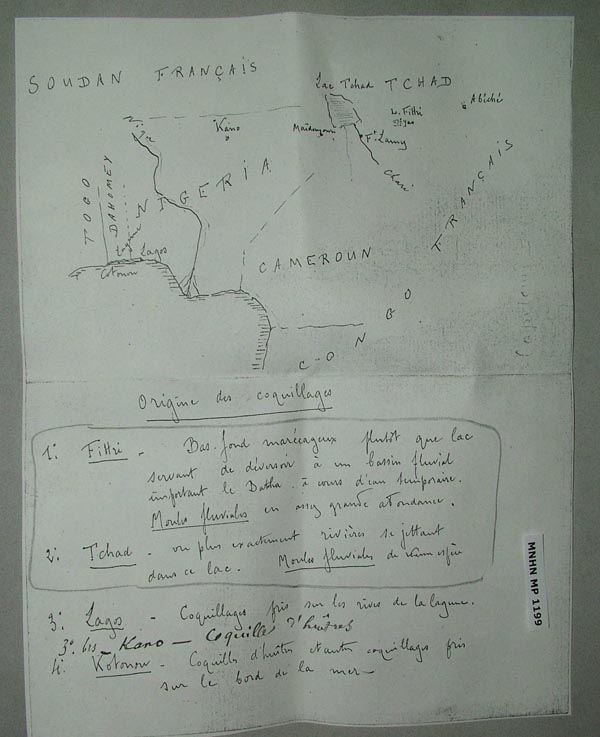 SOUDAN FRANÇAIS
Lac Tchad TCHAD
L. Fittri
Abéché
Niger
Kano
Ft Lamy
Chari
TOGO
DAHOMEY
NIGERIA
FRANÇAIS
Lagos
Cotonou
CAMEROUN
CONGO
Origine des coquillages
1°: Fittri - Bas. fond marécageux plutôt que lac
servant de déversoir à un bassin fluvial
important le Batha. à cours d'eau temporaire.
Moules fluviales en assez grande abondance.
2°: Tchad - ou plus exactement rivières se jettant
dans ce lac. Moules fluviales de même espèce
3°: Lagos - Coquillages pris sur les rives de la lagune.
3° bis - Kano - Coquille d'huîtres
4: Kotonou - Coquilles d'huîtres et autres coquillages pris
sur le bord de la mer -
MNHN MP 1199